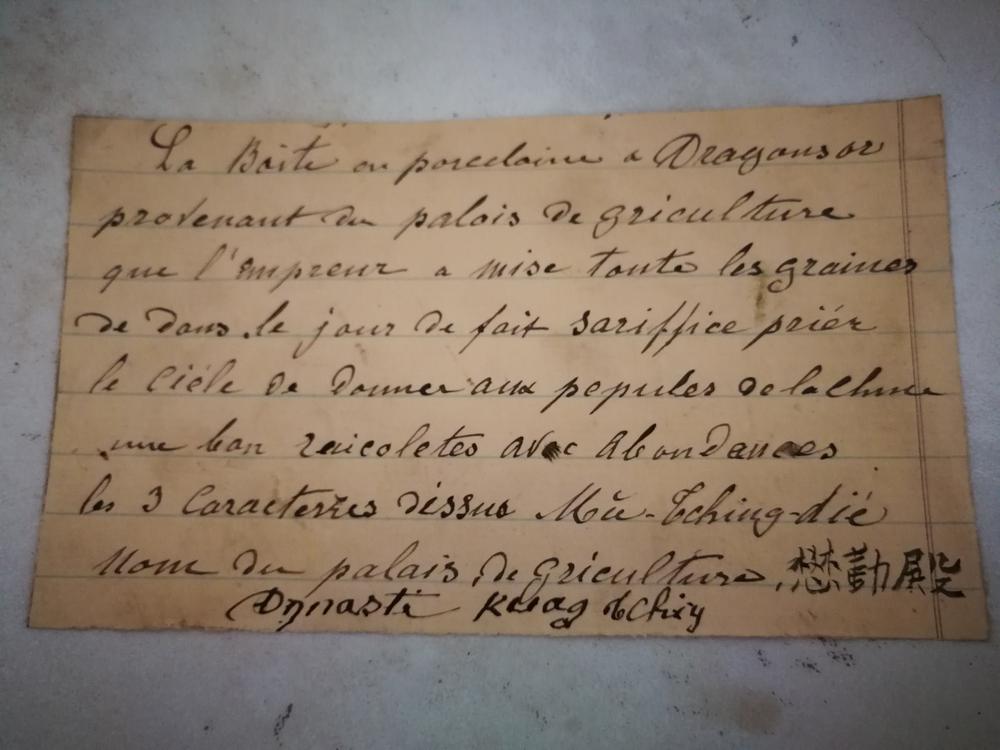 La Boite en porcelaine a Dragonsor
provenant du palais de griculture
que l'empreur a mise toute les graines
de dans le jour de fait sariffice priér
le Ciéle de donner aux pepules de la Chine
une bon reicoletes avec Abondances
les 3 Caracterres déssus Mŭ-Tching-dié
Nom du palais de griculture, 懋勤殿
Dynastie Kuag tchixy